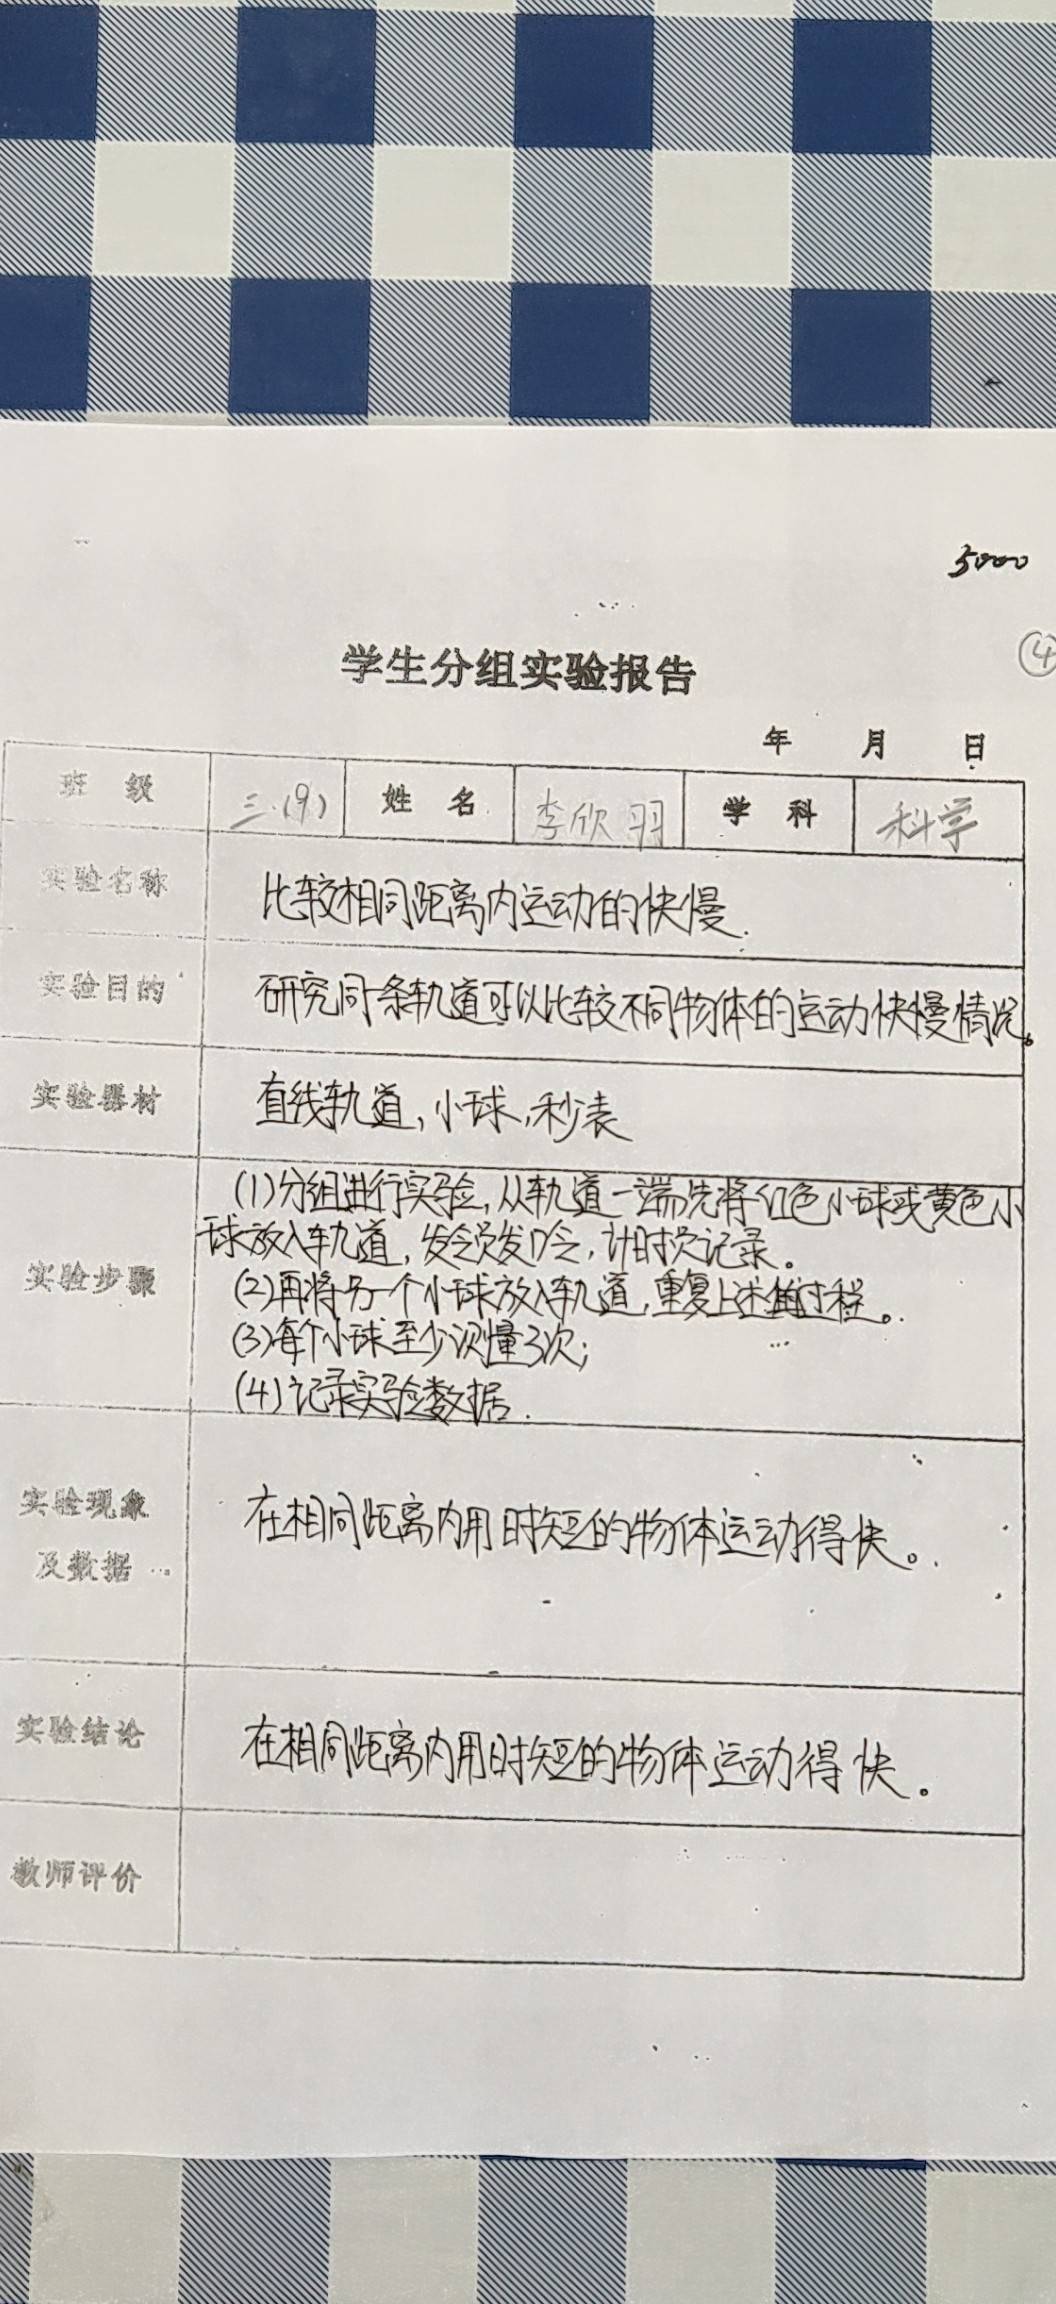 5000
④
学生分组实验报告
年 月 日
班 级 三.(9) 姓 名 李欣羽 学 科 科学
实验名称 比较相同距离内运动的快慢.
实验目的 研究同一条轨道可以比较不同物体的运动快慢情况。
实验器材 直线轨道,小球,秒表
实验步骤
(1)分组进行实验,从轨道一端先将红色小球或黄色小
球放入轨道,发令员发口令,计时员记录。
(2)再将另一个小球放入轨道,重复上述过程。
(3)每个小球至少测量3次;
(4)记录实验数据.
实验现象
及数据
在相同距离内用时短的物体运动得快。
实验结论 在相同距离内用时短的物体运动得快。
教师评价